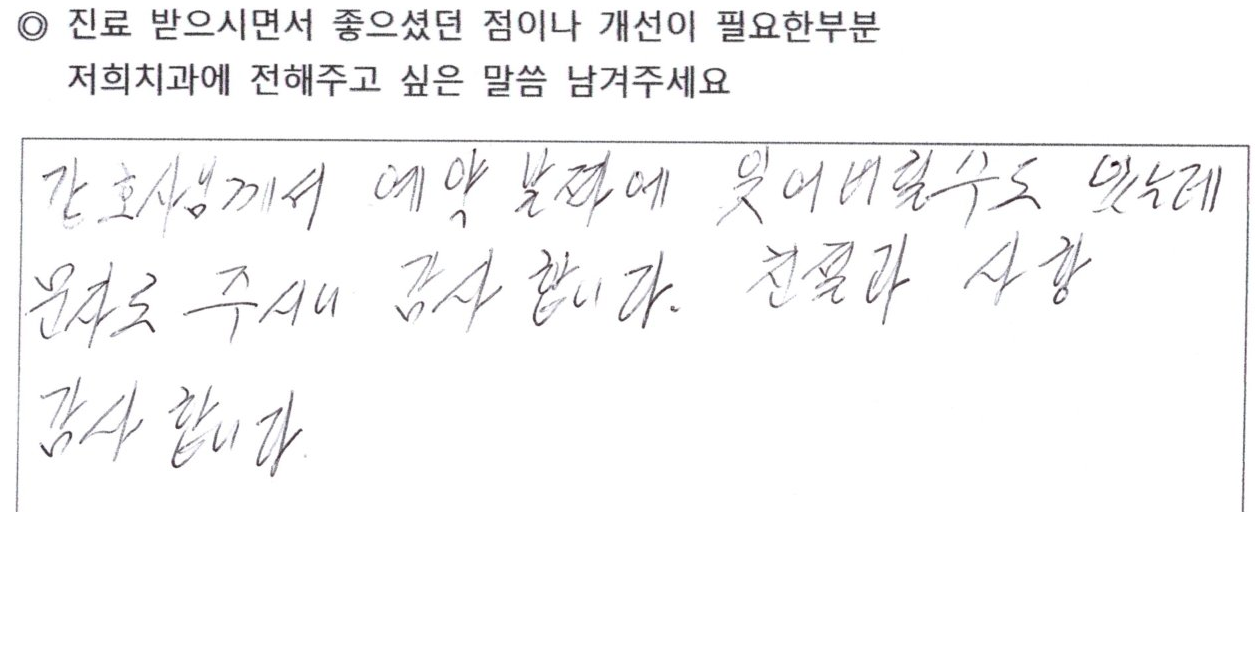 ◎ 진료 받으시면서 좋으셨던 점이나 개선이 필요한부분
저희치과에 전해주고 싶은 말씀 남겨주세요
간호사님께서 예약 날짜에 잊어버릴수도 있는데
문자로 주시니 감사합니다. 친절과 사랑
감사합니다.